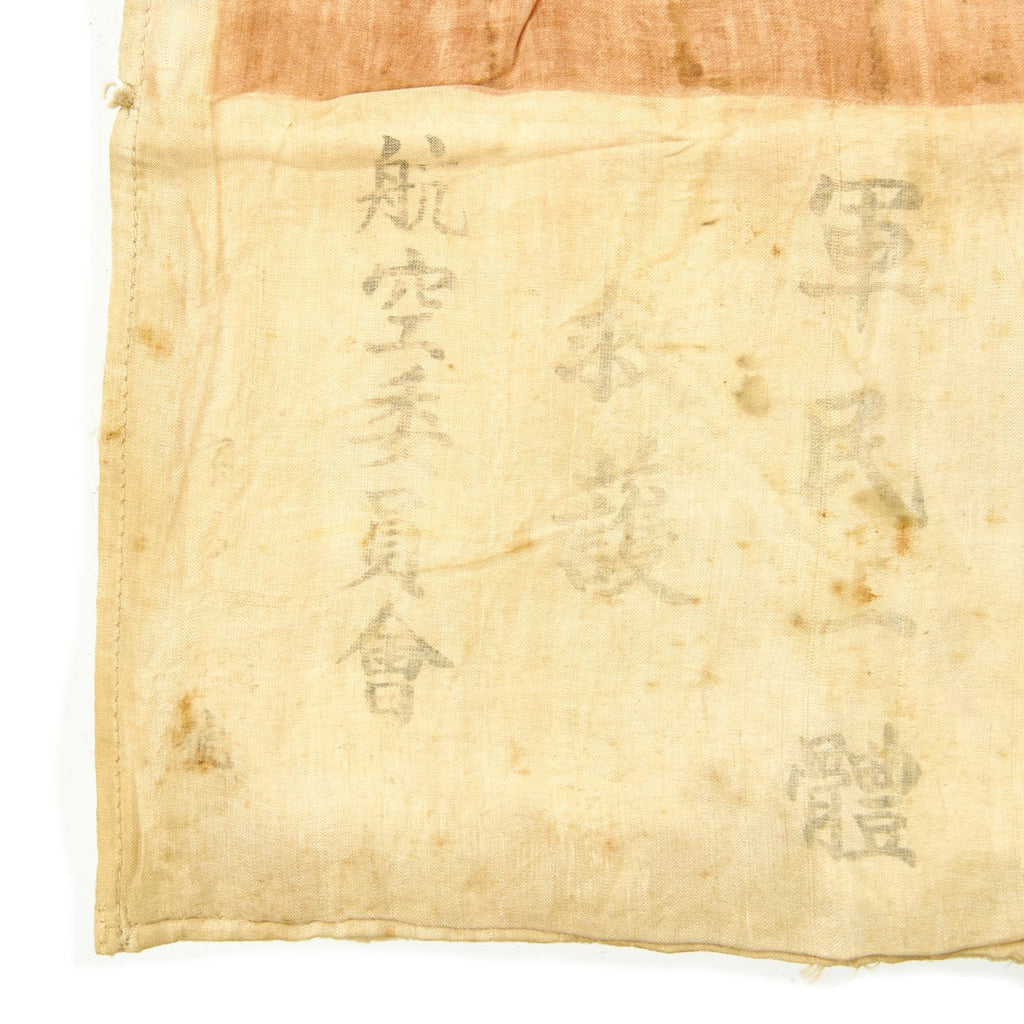 軍民一體
救護
航空委員會
號